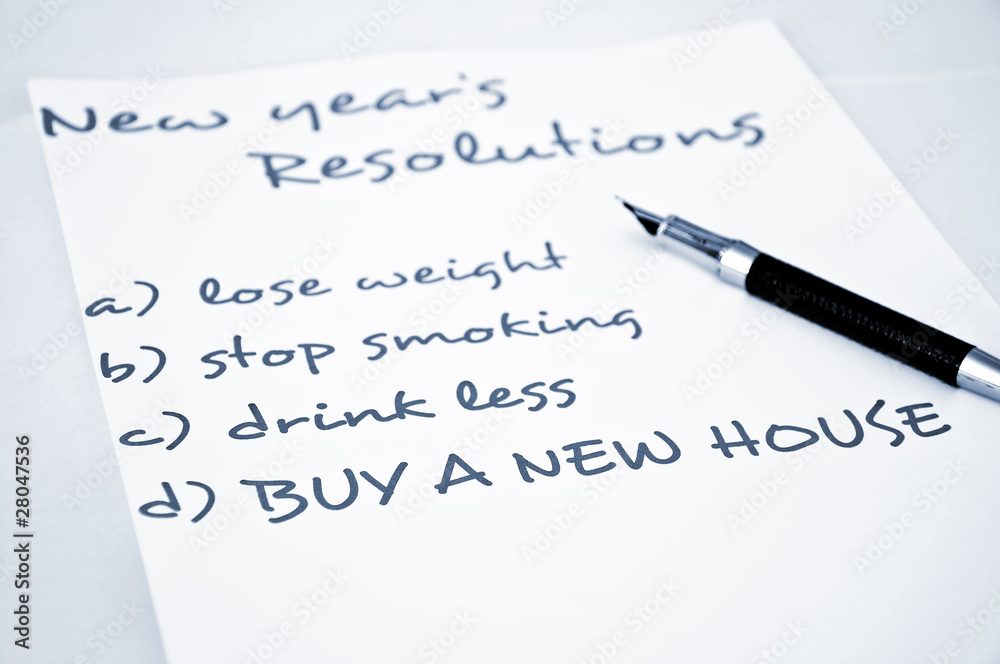 New year's
Resolutions
a) lose weight
b) stop smoking
c) drink less
d) BUY A NEW HOUSE
Adobe Stock | #28047536